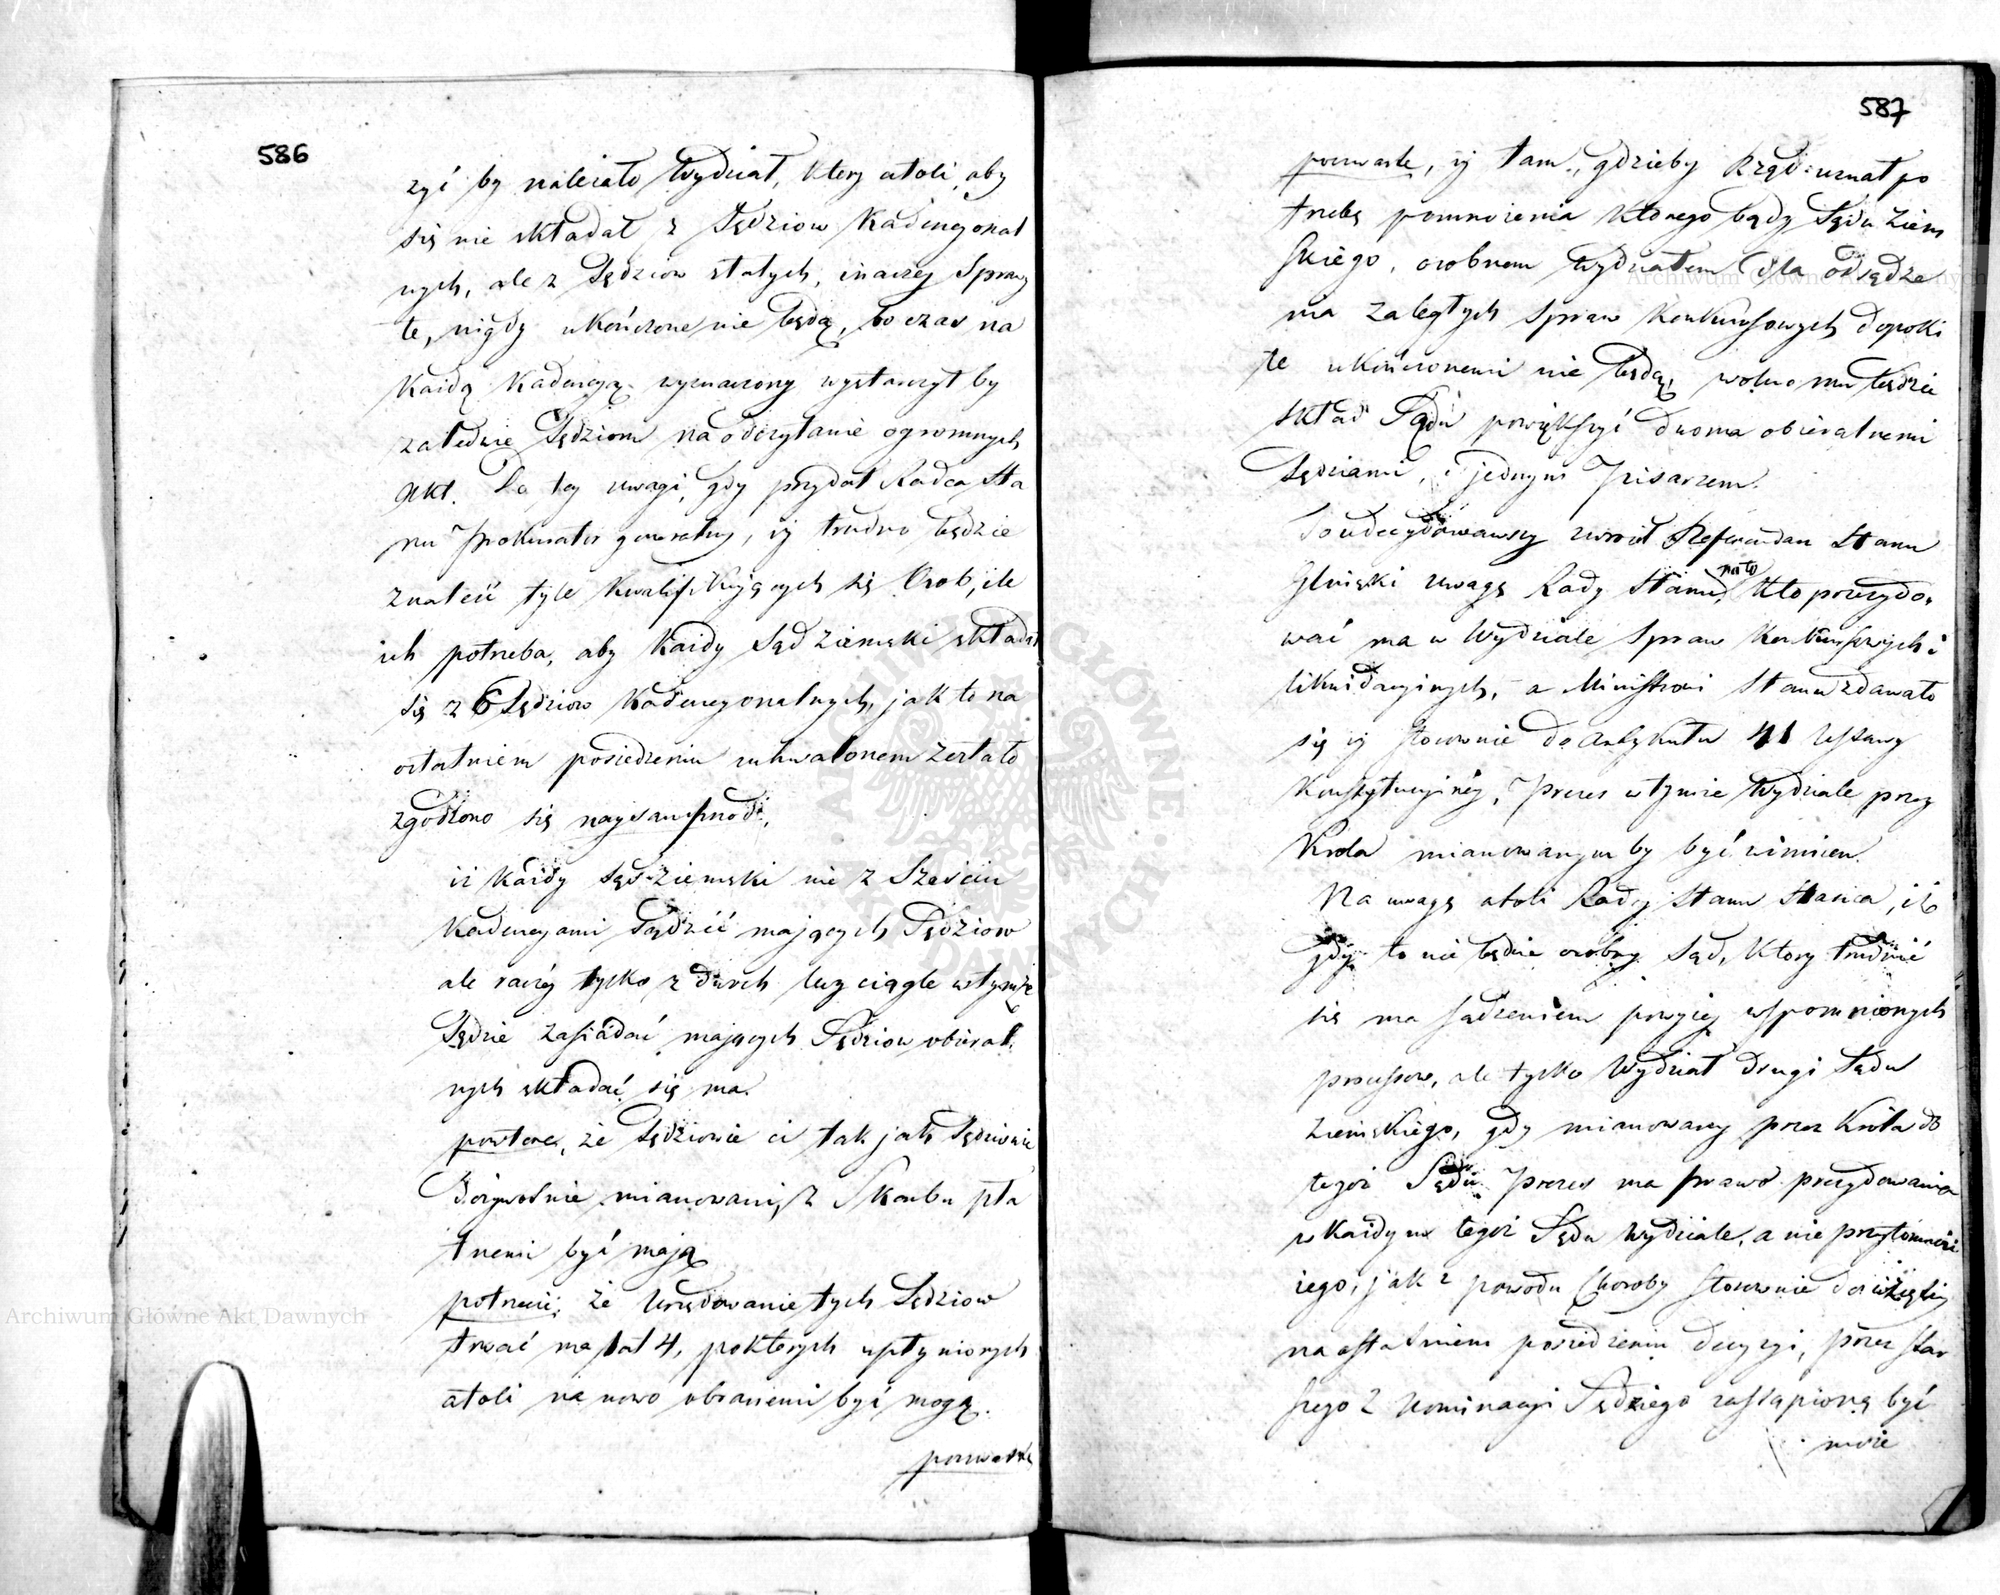 586
żyć by należało Wydział, ktory atoli, aby
się nie składał z Sędziow Kadencyonal
nych, ale z Sędziow stałych, inaczey Sprawy
te, nigdy ukończone nie będą, bo czas na
Każdą Kadencyą wyznaczony wystarczył by
zaledwie Sędziom na odczytanie ogromnych
Akt. Do tey uwagi, gdy przydał Radca Sta
nu Prokurator generalny, iż trudno będzie
znaleść tyle kwalifikujących się Osob, ile
ich potrzeba, aby każdy Sąd Ziemski składał
się z 6 Sędziow Kadencyonalnych, jak to na
ostatniem posiedzeniu uchwalonem zostało
zgodzono się naysamprzod,
iż każdy Sąd Ziemski nie z Sześciu
Kadencyami Sądzić mających Sędziow
ale raczéy tylko z dwoch lecz ciągle w tymże
Sądzie zasiadać mających Sędziow obieral
nych składać się ma.
powtore, że Sędziowie ci tak jak Sędziowie
Dożywotnie mianowani, z Skarbu pła
tnemi być mają
potrzecie, że Urzędowanie tych Sędziow
trwać ma lat 4, po ktorych upłynionych
atoli na nowo obranemi być mogą.
poczwarte
587
poczwarte, iż tam, gdzieby Rząd uznał po
trzebę pomnożenia ktorego bądź Sądu Ziem
skiego, osobnem Wydziałem dla odsądze
nia zaległych Spraw Konkursowych dopoki
te ukończonemi nie będą, wolno mu będzie
skład Sądu powiększyć dwoma obieralnemi
Sędziami, i jednym Pisarzem.
To udecydowawszy zwrócił Referendarz Stanu
Gliński uwagę Rady Stanu, na to kto prezydo,
wać ma w Wydziale Spraw Konkursowych i
likwidacyinych, a Ministrowi Stanu zdawało
się iż stosownie do Artykułu 41 Ustawy
Konstytucyinéy, Prezes w tymże Wydziale przez
Krola mianowanym by być winien.
Na uwagę atoli Radcy Stanu Stasica, iż
gdy to nie będzie osobny Sąd, ktory trudnić
się ma sądzeniem powyżey wspomnionych
processow, ale tylko Wydział drugi Sądu
Ziemskiego, gdy mianowany przez Krola do
tegoż Sądu Prezes ma prawo prezydowania
w każdym tegoż Sądu Wydziale, a nie przytomność
iego, jak z powodu choroby stosownie do wziętey
na ostatniem posiedzeniu decyzyi, przez star
szego z Nominacyi Sędziego zastąpioną być
może
Archiwum Główne Akt Dawnych